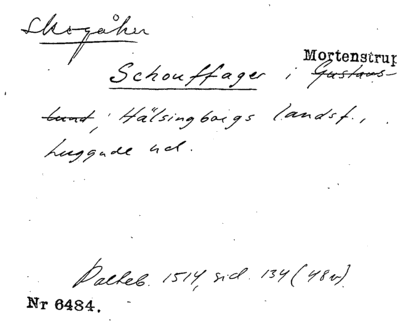 Skogåker
Mortenstrup
Schouffager i Gustavs-
lund, Hälsingborgs landsf.,
Luggude hd.
Palteb. 1514, sid. 134 (48v).
Nr 6484.